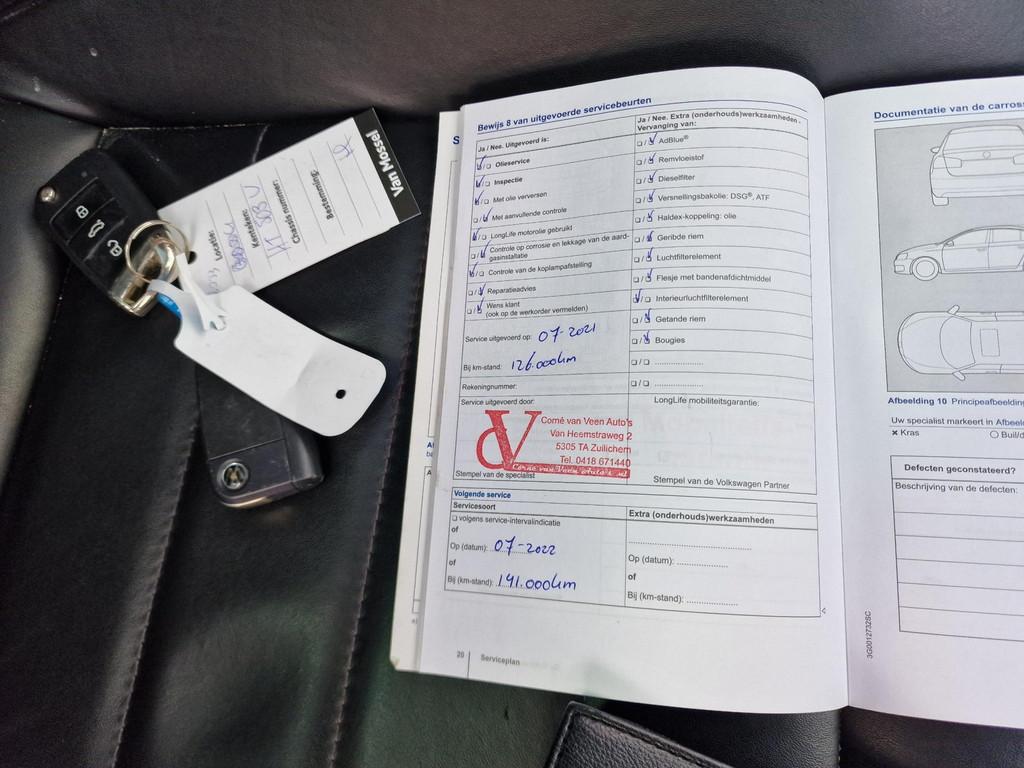 Van Mossel
Bestemming:
Chassis nummer:
Kenteken:
Locatie:
Bewijs 8 van uitgevoerde servicebeurten
Ja / Nee. Uitgevoerd is:
Olieservice
Inspectie
Met olie verversen
Met aanvullende controle
LongLife motorolie gebruikt
Controle op corrosie en lekkage van de aard-
gasinstallatie
Controle van de koplampafstelling
Reparatieadvies
Wens klant
(ook op de werkorder vermelden)
Service uitgevoerd op: 07-2021
Bij km-stand: 126.000km
Rekeningnummer:
Service uitgevoerd door:
Corné van Veen Auto's
Van Heemstraweg 2
5305 TA Zuilichem
Tel. 0418 671440
Corne van Veen Auto's.nl
Stempel van de specialist
Ja / Nee. Extra (onderhouds)werkzaamheden.
Vervanging van:
AdBlue®
Remvloeistof
Dieselfilter
Versnellingsbakolie: DSG®, ATF
Haldex-koppeling: olie
Geribde riem
Luchtfilterelement
Flesje met bandenafdichtmiddel
Interieurluchtfilterelement
Getande riem
Bougies
LongLife mobiliteitsgarantie:
Stempel van de Volkswagen Partner
Volgende service
Servicesoort
volgens service-intervalindicatie
of
Op (datum): 07-2022
of
Bij (km-stand): 141.000km
Extra (onderhouds)werkzaamheden
Op (datum):
of
Bij (km-stand):
20 Serviceplan
Documentatie van de
Afbeelding 10
Uw specialist markeert in
× Kras
Defecten geconstateerd?
Beschrijving van de defecten:
3G0012732SC